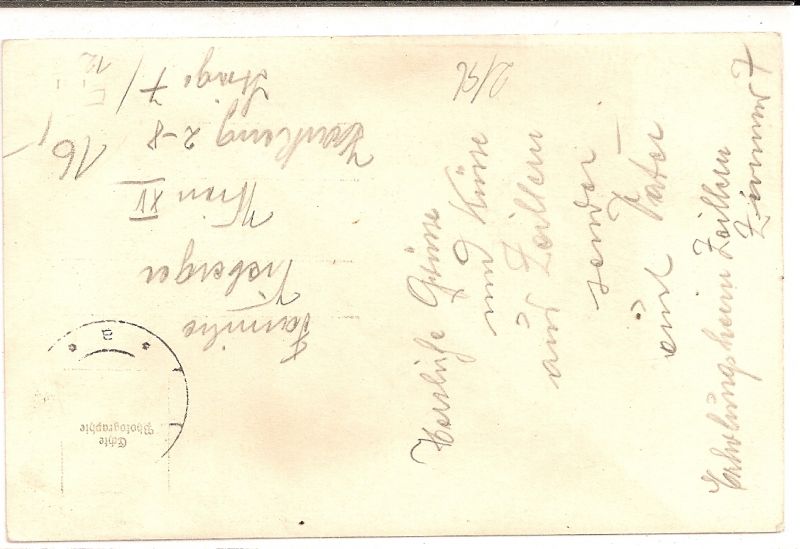 Herzliche Grüsse
und Küsse
aus Zeillern
sendet
euch Vater
Erholungsheim Zeillern
Zimmer 7
Familie
Wien XV
2-8
Stiege 7/12
16/
Echte
Photographie